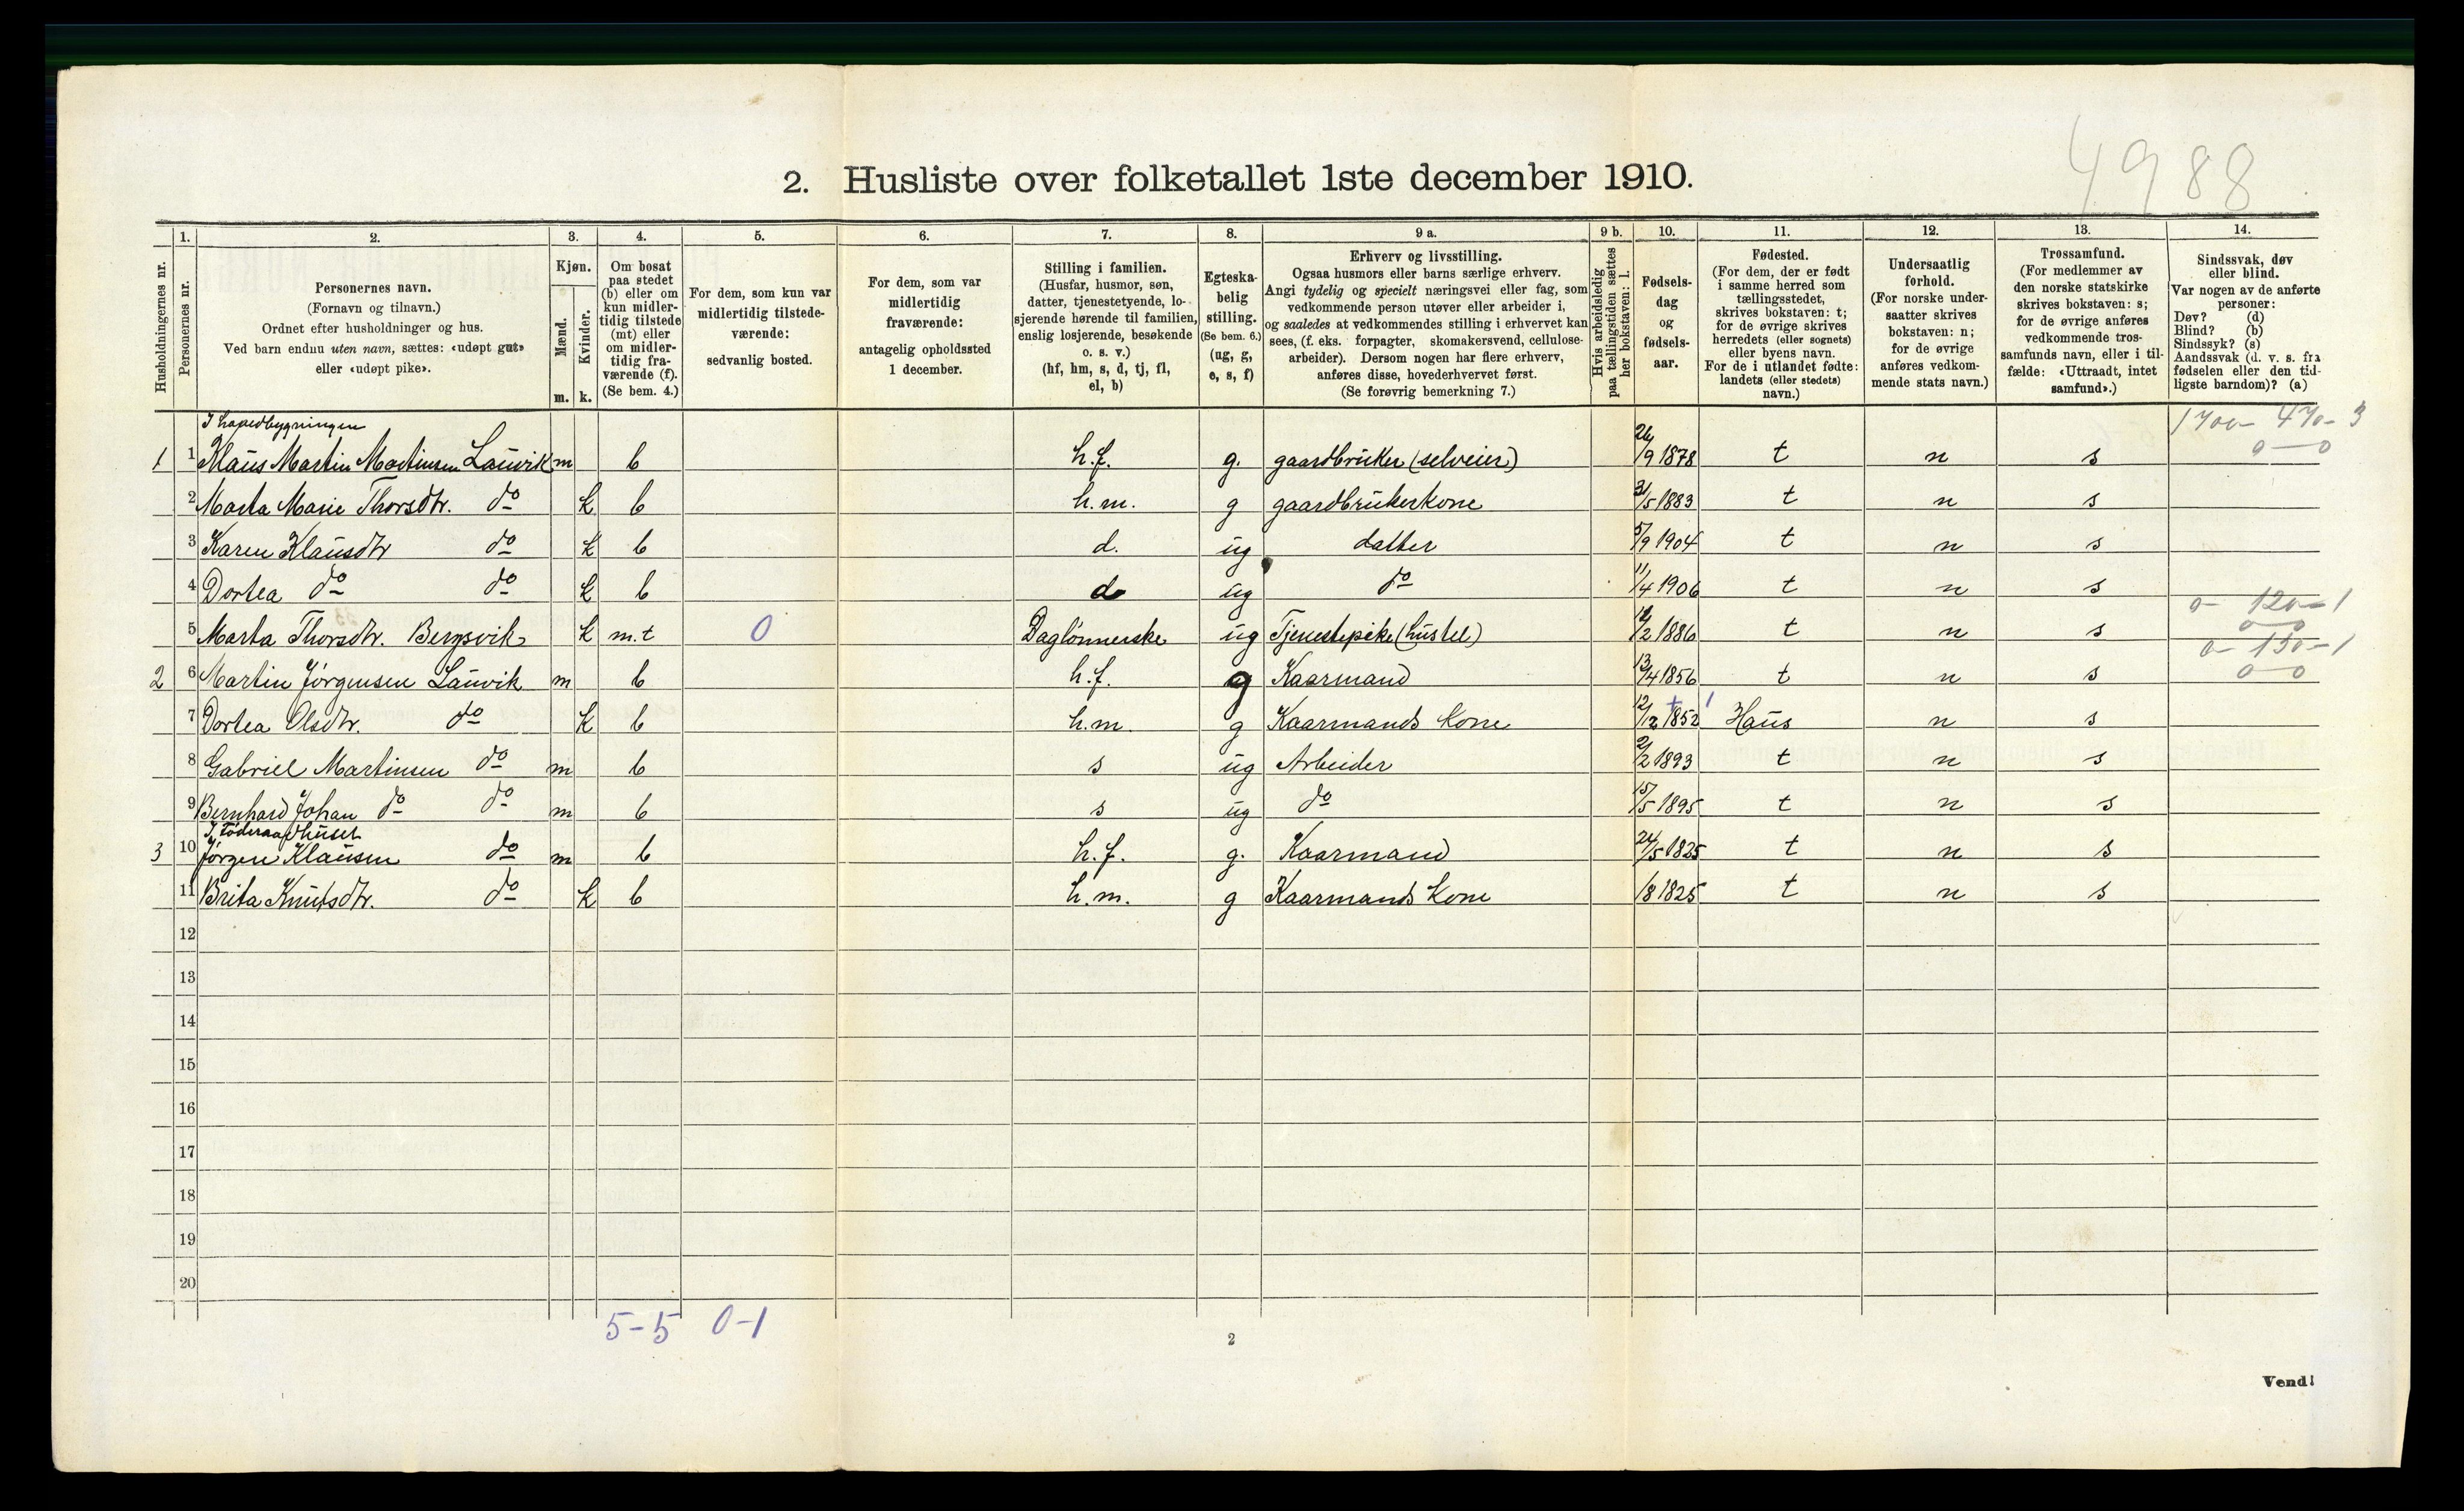 4988
2. Husliste over folketallet 1ste december 1910.
1. 2. 3. 4. 5. 6. 7. 8. 9 a. 9 b. 10. 11. 12. 13. 14.
Husholdningernes nr.
Personernes nr.
Personernes navn.
(Fornavn og tilnavn.)
Ordnet efter husholdninger og hus.
Ved barn endnu uten navn, sættes: «udøpt gut»
eller «udøpt pike».
Kjøn.
Mænd.
Kvinder.
m. k.
Om bosat
paa stedet
(b) eller om
kun midler-
tidig tilstede
(mt) eller
om midler-
tidig fra-
værende (f).
(Se bem. 4.)
For dem, som kun var
midlertidig tilstede-
værende:
sedvanlig bosted.
For dem, som var
midlertidig
fraværende:
antagelig opholdssted
1 december.
Stilling i familien.
(Husfar, husmor, søn,
datter, tjenestetyende, lo-
sjerende hørende til familien,
enslig losjerende, besøkende
o. s. v.)
(hf, hm, s, d, tj, fl,
el, b)
Egteska-
belig
stilling.
(Se bem. 6.)
(ug, g,
e, s, f)
Erhverv og livsstilling.
Ogsaa husmors eller barns særlige erhverv.
Angi tydelig og specielt næringsvei eller fag, som
vedkommende person utøver eller arbeider i,
og saaledes at vedkommendes stilling i erhvervet kan
sees, (f. eks. forpagter, skomakersvend, cellulose-
arbeider). Dersom nogen har flere erhverv,
anføres disse, hovederhvervet først.
(Se forøvrig bemerkning 7.)
Hvis arbeidsledig
paa tællingstiden sættes
her bokstaven: l.
Fødsels-
dag
og
fødsels-
aar.
Fødested.
(For dem, der er født
i samme herred som
tællingsstedet,
skrives bokstaven: t;
for de øvrige skrives
herredets (eller sognets)
eller byens navn.
For de i utlandet fødte:
landets (eller stedets)
navn.)
Undersaatlig
forhold.
(For norske under-
saatter skrives
bokstaven: n;
for de øvrige
anføres vedkom-
mende stats navn.)
Trossamfund.
(For medlemmer av
den norske statskirke
skrives bokstaven: s;
for de øvrige anføres
vedkommende tros-
samfunds navn, eller i til-
fælde: «Uttraadt, intet
samfund».)
Sindssvak, døv
eller blind.
Var nogen av de anførte
personer:
Døv? (d)
Blind? (b)
Sindssyk? (s)
Aandssvak (d. v. s. fra
fødselen eller den tid-
ligste barndom)? (a)
I hovedbygningen 1700- 470- 3
1 1 Klaus Martin Martinsen Lauvik m b h.f. g. gaardbruker (selveier) 26/9 1878 t n s 0—0
2 Marta Marie Thorsdtr. do k b h.m. g gaardbrukerkone 31/5 1883 t n s
3 Karen Klausdtr do k b d. ug datter 5/9 1904 t n s
4 Dortea do do k b d ug do 11/4 1906 t n s
0- 120-1
5 Marta Thorsdtr. Bergsvik k m.t 0 Daglønnerske ug Tjenestepike (hustel) /2 1886 t n s 0—0
0- 150-1
2 6 Martin Jørgensen Lauvik m b h.f. g Kaarmand 13/4 1856 t n s 0—0
7 Dortea Olsdtr. do k b h.m. g Kaarmands kone 12/12 1852 Haus n s
8 Gabriel Martinsen do m b s ug Arbeider 2/2 1893 t n s
9 Bernhard Johan do do m b s ug do 15/5 1895 t n s
I Føderaadhuset
3 10 Jørgen Klausen do m b h.f. g. Kaarmand 24/5 1825 t n s
11 Brita Knutsdtr. do k b h.m. g Kaarmands kone /8 1825 t n s
12
13
14
15
16
17
18
19
20
5-5 0-1
2
Vend!